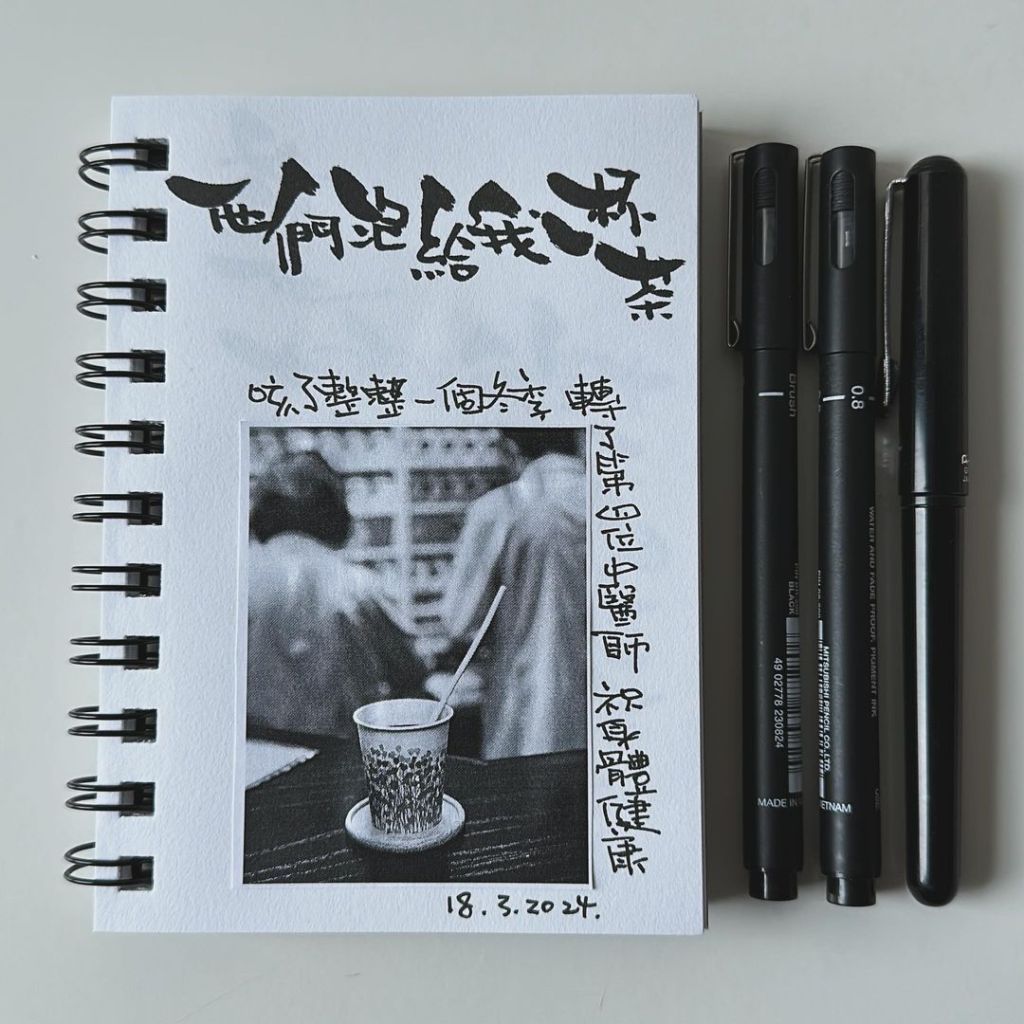 他們泡給我一杯茶
咳了整整一個冬季 轉
了第四位中醫師 祝身體健康
18.3.2024.
Brush
BLACK
49 02778 230824
MADE IN
0.8
WATER AND FADE PROOF, PIGMENT INK
MITSUBISHI PENCIL CO., LTD.
ETNAM